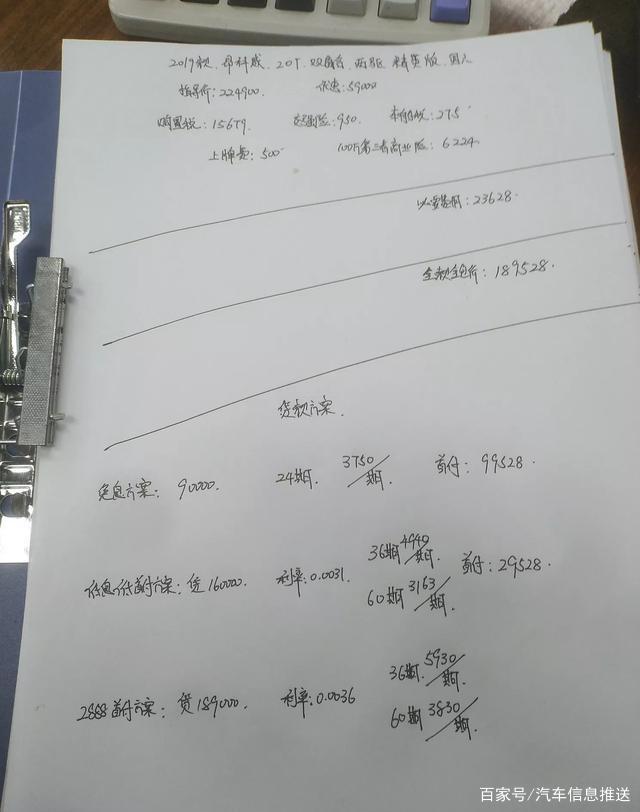 2019款 昂科威 20T 双离合 两驱 精英版 国六
指导价:224900. 优惠:59000
购置税:15679. 交强险:950. 车船税:275
上牌费:500 100万第三者商业险:6224.
必要费用:23628.
全款全包价:189528.
贷款方案.
免息方案: 90000. 24期. 3750/期. 首付:99528.
低息低首付方案:贷160000. 利率:0.0031. 36期4940/期. 首付:29528.
60期3163/期.
2888首付方案:贷189000. 利率:0.0036 36期.5930/期.
60期3830/期.
百家号/汽车信息推送